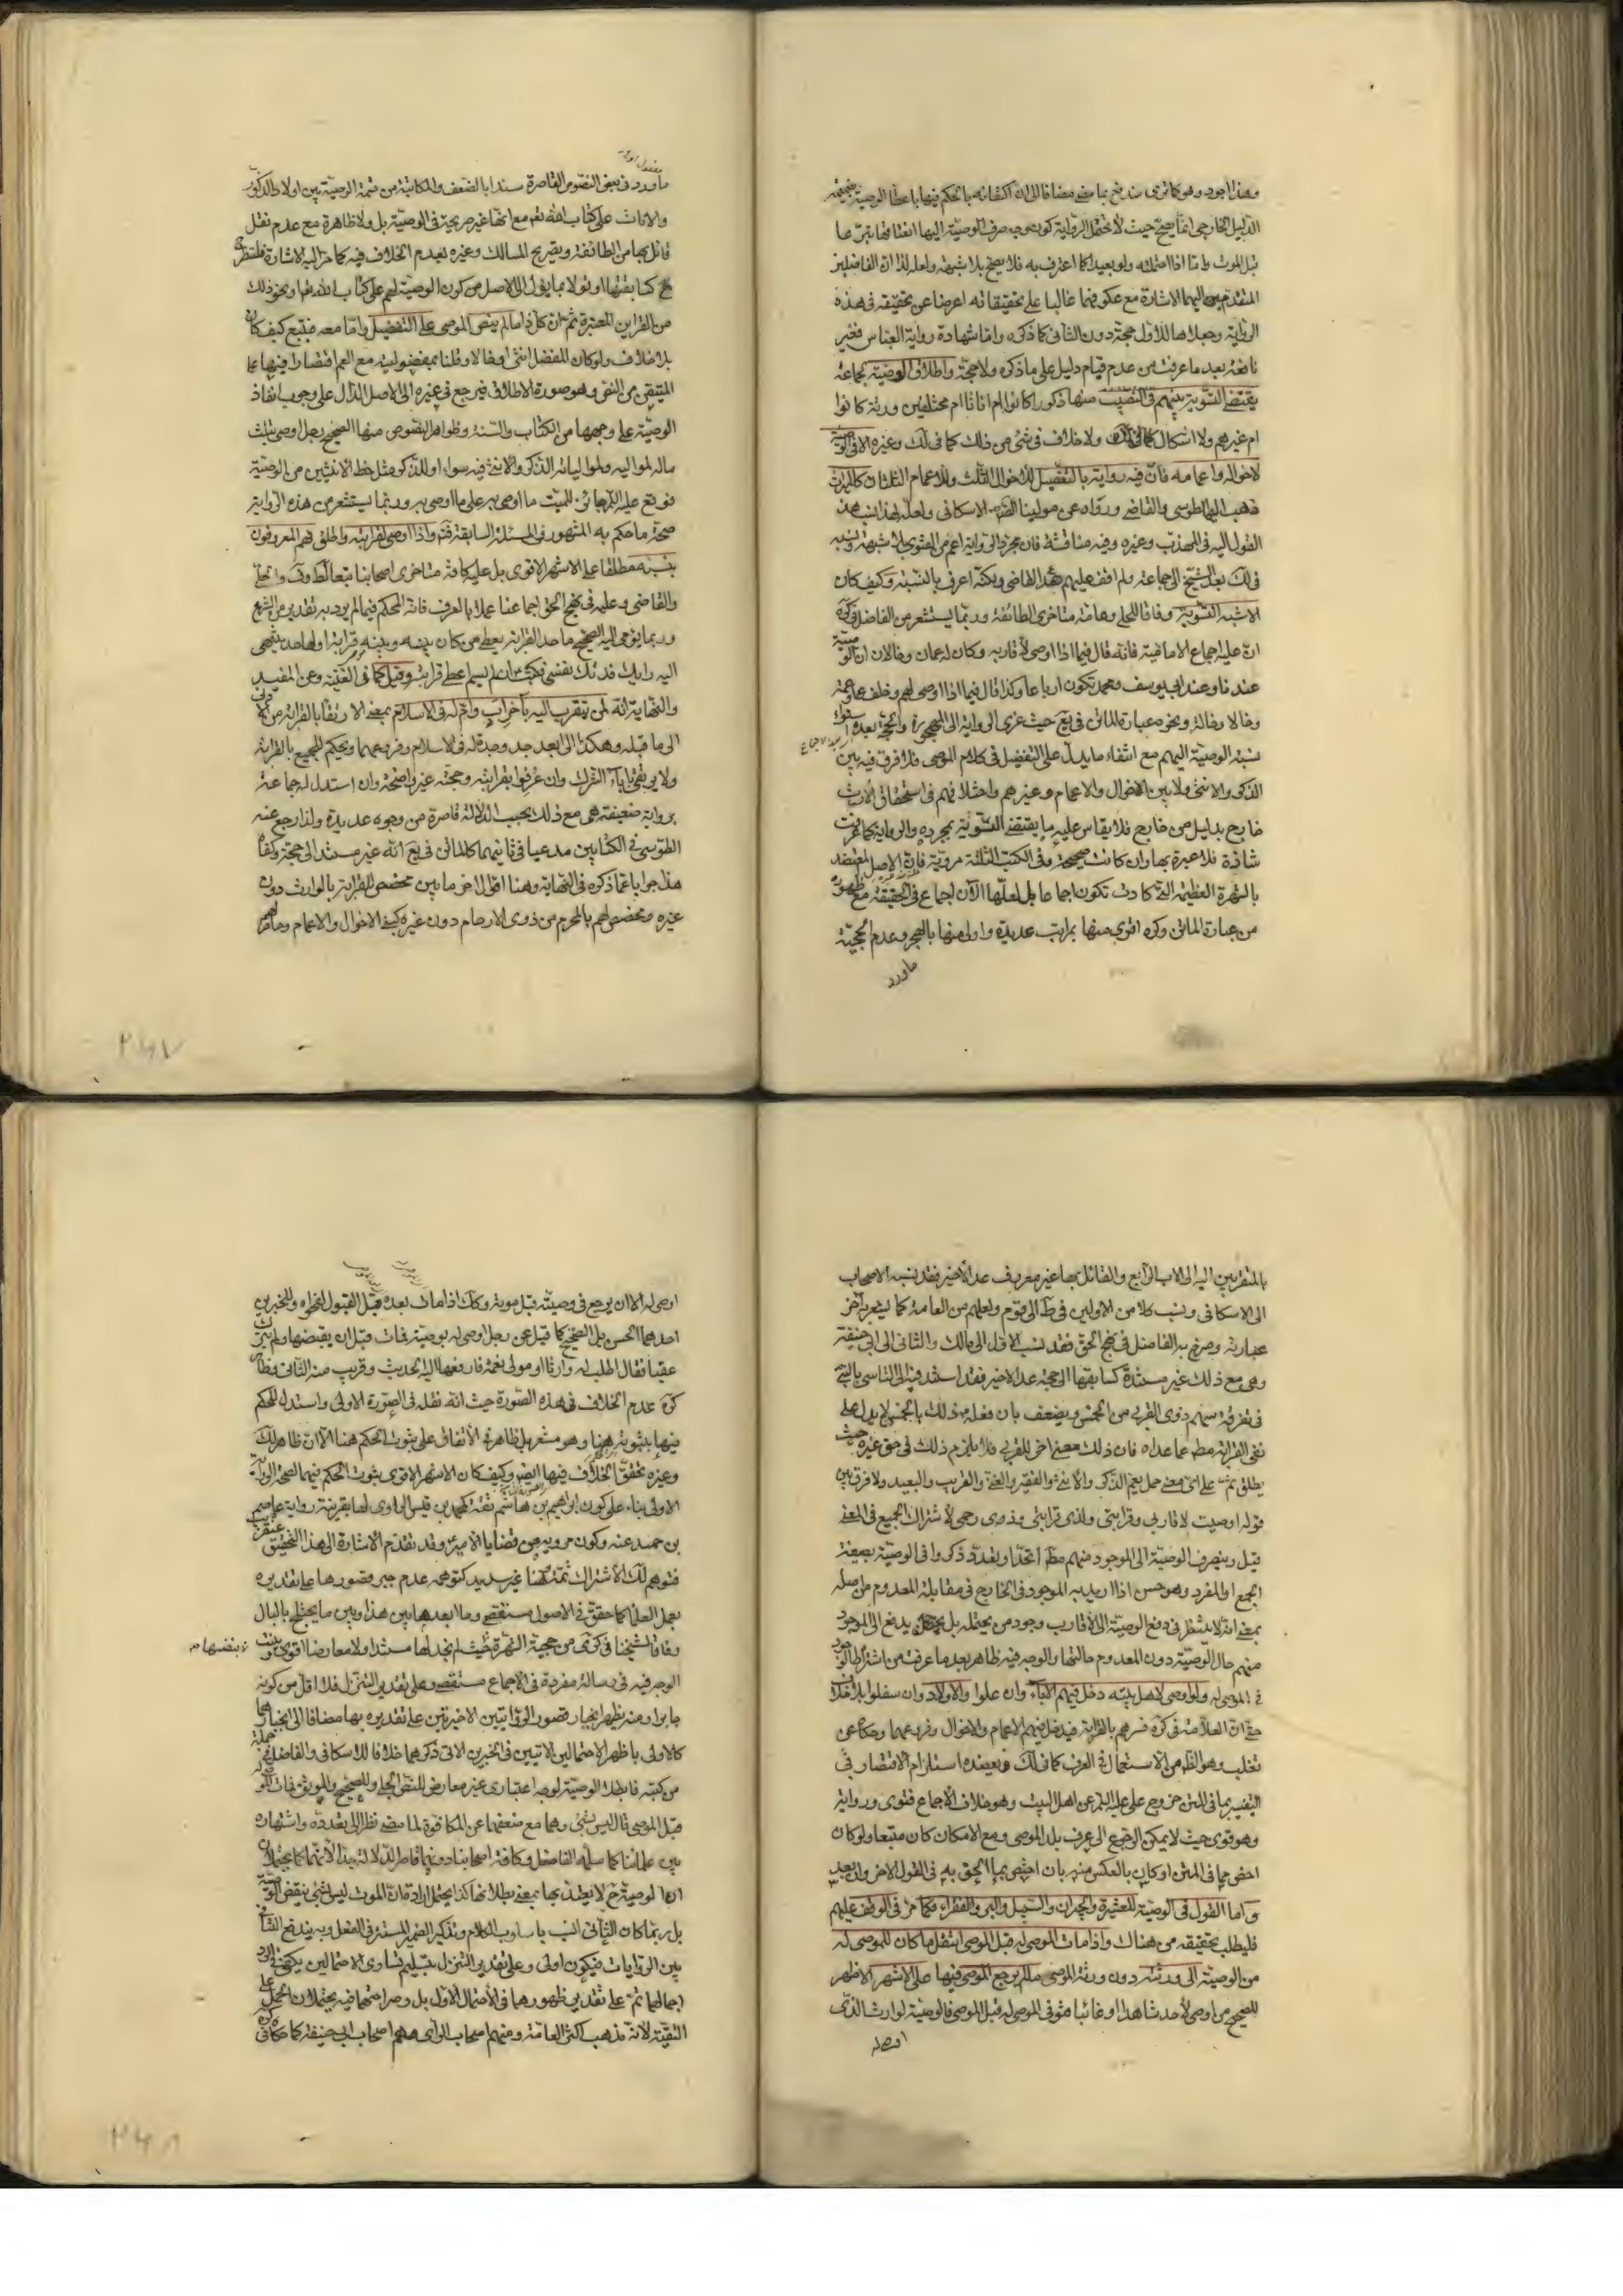 وهذا اجود وهو كما ترى مندفع بما مضى مضافا الى ان اكتفائه بالحكم فيها باعطاء الوصية بضميمة
الدليل الخارجى انما يصح حيث لا تحتمل الرواية كون وجه صرف الوصية اليها انعتاقها بتبرعها
قبل الموت واما اذا احتمله ولو بعيدا كما اعترف به فلا يصح بلا شبهة ولعله لذا ان الفاضلين
المتقدم اليهما الاشارة مع عكوفهما غالبا على تحقيقاته اعرضا عن تحقيقه فى هذه
الرواية وجعلاها للاول حجة دون الثانى كما ذكره واما شهادة رواية العباس فغير
نافعة بعد ما عرفت من عدم قيام دليل على ما ذكره ولا حجة واطلاق الوصية لجماعة
يقتضى التسوية بينهم فى النصيب منها ذكورا كانوا ام اناثا ام مختلفين ورثة كانوا
ام غيرهم ولا اشكال ولا خلاف فى شئ من ذلك كما فى لك وغيره الا فى الوصية
لاخواله واعمامه فان فيه رواية بالتفضيل للاخوال الثلث وللاعمام الثلثان كالميراث
فذهب اليها الطوسى والقاضى ورواه عن مولينا الاسكافى ولعله لهذا نسب هذا
القول اليه فى المهذب وغيره وفيه مناقشة فان مجرد الرواية اعم من الفتوى بلا شبهة ونسبه
فى لك بعد الشيخ الى جماعة ولم اقف عليهم عدا القاضى ولكنه اعرف بالنسبة وكيف كان
الاشبه التسوية وفاقا للحلى وعامة متاخرى الطائفة وربما يستشعر من الفاضل فى كره
ان عليه اجماع الامامية فانه قال فيما اذا اوصى لاقاربه وكان له عمان وخالان ان الوصية
عندنا وعند ابى يوسف ومحمد تكون ارباعا وكذا قال فيما اذا اوصى لهم وخلف عما وعمة
وخالا وخالة ونحوه عبارة الماتن فى يع حيث عزى الرواية الى المهجورة والحجة بعده استواء
نسبة الوصية اليهم مع انتفاء ما يدل على التفضيل فى كلام الموصى فلا فرق فيه بين
الذكر والانثى ولا بين الاخوال والاعمام وغيرهم واختلافهم فى استحقاق الارث
خارج بدليل من خارج فلا يقاس عليه ما يقتضى التسوية بمجرده والرواية كما عرفت
شاذة فلا عبرة بها وان كانت صحيحة وفى الكتب الثلثة مروية فان الاصل المعتضد
بالشهرة العظيمة التى كادت تكون اجماعا بل لعلها الآن اجماع فى الحقيقة مع ظهوره
من عبارة الماتن وكره اقوى منها بمراتب عديدة واولى منها بالهجر وعدم الحجية
ماورد
ماورد فى بعض النصوص القاصرة سندا بالضعف والمكاتبة من قسمة الوصية بين اولاد الذكور
والاناث على كتاب الله تعالى مع انها غير صريحة فى الوصية بل ولا ظاهرة مع عدم نقل
قائل بها من الطائفة وتصريح المسالك وغيره بعدم الخلاف فيه كما مر اليه الاشارة فلتطرح
كسابقتها او تؤولا بما يؤول الى الاصل من كون الوصية لهم على كتاب الله تعالى ونحو ذلك
من القراين المعتبرة ثم ان كل ذا ما لم ينص الموصى على التفضيل واما معه فيتبع كيف كان
بلا خلاف ولو كان المفضل انثى او خالا وقلنا بمفضوليته مع العم اقتصارا فيها على
المتيقن من النص وهو صورة الاطلاق فيرجع فى غيره الى الاصل الدال على وجوب انفاذ
الوصية على وجهها من الكتاب والسنة وظواهر النصوص منها الصحيح رجل اوصى بثلث
ماله لمواليه ولموالياته الذكر والانثى فيه سواء او للذكر مثل حظ الانثيين من الوصية
فوقع عليه السلام جائز للميت ما اوصى به على ما اوصى به وربما يستشعر من هذه الرواية
صحة ما حكم به المشهور فى المسئلة السابقة فتد واذا اوصى لقرابته واطلق فهم المعروفون
بنسبه مطلقا على الاشهر الاقوى بل عليه كافة متاخرى اصحابنا تبعا لط وف والحلى
والقاضى وعليه فى نهج الحق اجماعنا عملا بالعرف فانه المحكم فيما لم يرد به تقدير من الشرع
وربما يومى اليه الصحيح ما حد القرابة يعطى من كان بينه وبينه قرابة او لها حد ينتهى
اليه رايك فدتك نفسى فكتب ان لم يسم اعطى قرابته وقيل كما فى الغنية وعن المفيد
والنهاية انه لمن يتقرب اليه بآخر اب وام له فى الاسلام بمعنى الارتقاء بالقرابة من الادنى
الى ما قبله وهكذا الى ابعد جد وجدة له فى الاسلام وفروعهما ويحكم للجميع بالقرابة
ولا يرتقى الى آباء الشرك وان عرفوا بقرابته وحجته غير واضحة وان استدل له جماعة
برواية ضعيفة هى مع ذلك بحسب الدلالة قاصرة من وجوه عديدة ولذا رجع عنه
الطوسى فى الكتابين مدعيا فى ثانيهما كالماتن فى يع انه غير مستند الى حجة وكفى
هذا جوابا عما ذكره فى النهاية وهنا اقوال اخر ما بين مخصص للقرابة بالوارث دون
غيره ومخصص لهم بالمحرم من ذوى الارحام دون غيره كبنى الاخوال والاعمام
بالمتقربين اليه الى الاب الرابع والقائل بها غير معروف عدا الاخير فقد نسبه الاصحاب
الى الاسكافى ونسب كلا من الاولين فى ط الى قوم ولعلهم من العامة كما يشعر به آخر
عبارته وصرح به الفاضل فى نهج الحق فقد نسب الاول الى مالك والثانى الى ابى حنيفة
وهى مع ذلك غير مستندة كسابقها الى حجة عدا الاخير فقد استند فيه الى التاسى بالنبى
فى تفرقة سهم ذوى القربى من الخمس ويضعف بان فعله ذلك بالخمس لا يدل على
نفى القرابة مطلقا عما عداه فان ذلك معنى اخر للقربى فلا يلزم ذلك فى حق غيره حيث
يطلق ثم على اى معنى حمل يعم الذكر والانثى والفقير والغنى والقريب والبعيد ولا فرق بين
قوله اوصيت لاقاربى وقرابتى ولذى قرابتى وذوى رحمى لاشتراك الجميع فى المعنى
قيل وينصرف الوصية الى الموجود منهم مطلقا اتحد او تعدد ذكروا فى الوصية بصيغة
الجمع او المفرد وهو حسن اذا اريد به الموجود فى الخارج فى مقابلة المعدوم من اصله
بمعنى انه لا ينتظر فى دفع الوصية الى الاقارب وجود من يحتمله بل يدفع الى الموجود
منهم حال الوصية دون المعدوم حالتها والوجه فيه ظاهر بعد ما عرفت من اشتراط الوجود
فى الموصى له ولو اوصى لاهل بيته دخل فيهم الآباء وان علوا والاولاد وان سفلوا بلا خلاف
حتى ان العلامة فى كره فسرهم بالقرابة فيدخل فيهم الاعمام والاخوال وفروعهما وحكاه عن
تغلب وهو الظاهر من الاستعمال فى العرف كما فى لك ويعضده استلزام الاقتصار فى
التفسير بما فى المتن خروج على عليه السلام عن اهل البيت وهو خلاف الاجماع فتوى ورواية
وهو قوى حيث لا يمكن الرجوع الى عرف بلد الموصى ومع الامكان كان متبعا ولو كان
اخص مما فى المتن او كان بالعكس منه بان اختص بما الحق به فى القول الاخر وان بعد
واما القول فى الوصية للعشيرة والجيران والسبيل والبر والفقراء فكما مر فى الوقف عليهم
فليطلب تحقيقه من هناك واذا مات الموصى له قبل الموصى انتقل ما كان للموصى له
من الوصية الى ورثته دون ورثة الموصى ما لم يرجع الموصى فيها على الاشهر الاظهر
للصحيح من اوصى لاحد شاهدا او غائبا فتوفى الموصى له قبل الموصى فالوصية لوارث الذى
اوصى له
اوصى له الا ان يرجع فى وصيته قبل موته وكذلك اذا مات بعده قبل القبول لفحواه وللخبرين
احدهما الحسن بل الصحيح كما قيل عن رجل اوصى له بوصية فمات قبل ان يقبضها ولم يترك
عقبا فقال اطلب له وارثا او مولى نعمة فادفعها اليه الحديث وقريب منه الثانى وظاهر
كره عدم الخلاف فى هذه الصورة حيث انه نقله فى الصورة الاولى واستدل للحكم
فيها بثبوته هنا وهو مشعر بل ظاهر فى الاتفاق على ثبوت الحكم هنا الا ان ظاهر لك
وغيره تحقق الخلاف فيها ايضا وكيف كان الاشهر الاقوى ثبوت الحكم فيهما لصحة الرواية
الاولى بناء على كون ابراهيم بن هاشم ثقة كمحمد بن قيس الراوى لها بقرينة رواية عاصم
بن حميد عنه وكون مرويه من قضايا الامير وقد تقدم الاشارة الى هذا التحقيق عنقريب
فتوهم لك الاشتراك ثمة وهنا غير سديد كتوهمه عدم جبر قصورها على تقديره
بعمل العلماء كما حقق فى الاصول مستقصى وما ابعد ما بين هذا وبين ما يختلج بالبال
وفاقا لشيخنا فى كرى من حجية الشهرة حيث لم نجد لها مستندا ولا معارضا اقوى وبينت
الوجه فيه فى رسالة مفردة فى الاجماع مستقصى وعلى تقدير التنزل فلا اقل من كونه
جابرا ومنه يظهر انجبار قصور الروايتين الاخيرتين على تقديره بها مضافا الى انجبارهما
كالاولى باظهر الاحتمالين الاتيين فى الخبرين الاتى ذكرهما خلافا للاسكافى والفاضل فى جملة
من كتبه فابطلا الوصية لوجه اعتبارى غير معارض للنص الجلى وللصحيح والموثق فمات الموصى له
قبل الموصى قال ليس بشئ وهما مع ضعفهما عن المكافئة لما مضى نظرا الى تعدده واشتهاره
بين علمائنا كما سلمه الفاضل وكافة اصحابنا دونهما قاصرا الدلالة جدا لانهما كما يحتملان
ان الوصية ح لا يعتد بها بمعنى بطلانها كذا يحتمل ارادة ان الموت ليس بشئ ينقض الوصية
بل ربما كان الثانى انسب باسلوب الكلام وتذكير الضمير المستتر فى الفعل وبه يندفع التنافى
بين الروايات فيكون اولى وعلى تقدير التنزل بتسليم تساوى الاحتمالين يكفى فى الرد
اجمالها ثم على تقدير ظهورهما فى الاحتمال الاول بل وصراحتهما فيه يحتملان الحمل على
التقية لانه مذهب اكثر العامة ومنهم اصحاب الراى وهم اصحاب ابى حنيفة كما حكاه فى كره